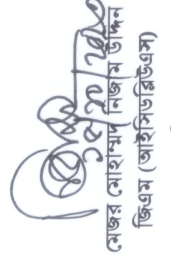 মেজর মোহাম্মদ নিজাম উদ্দিন
জিএম (আইসিডব্লিউএস)